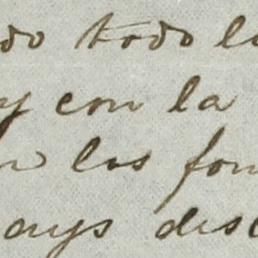 do todo lo
y con la
los fon
ays dist